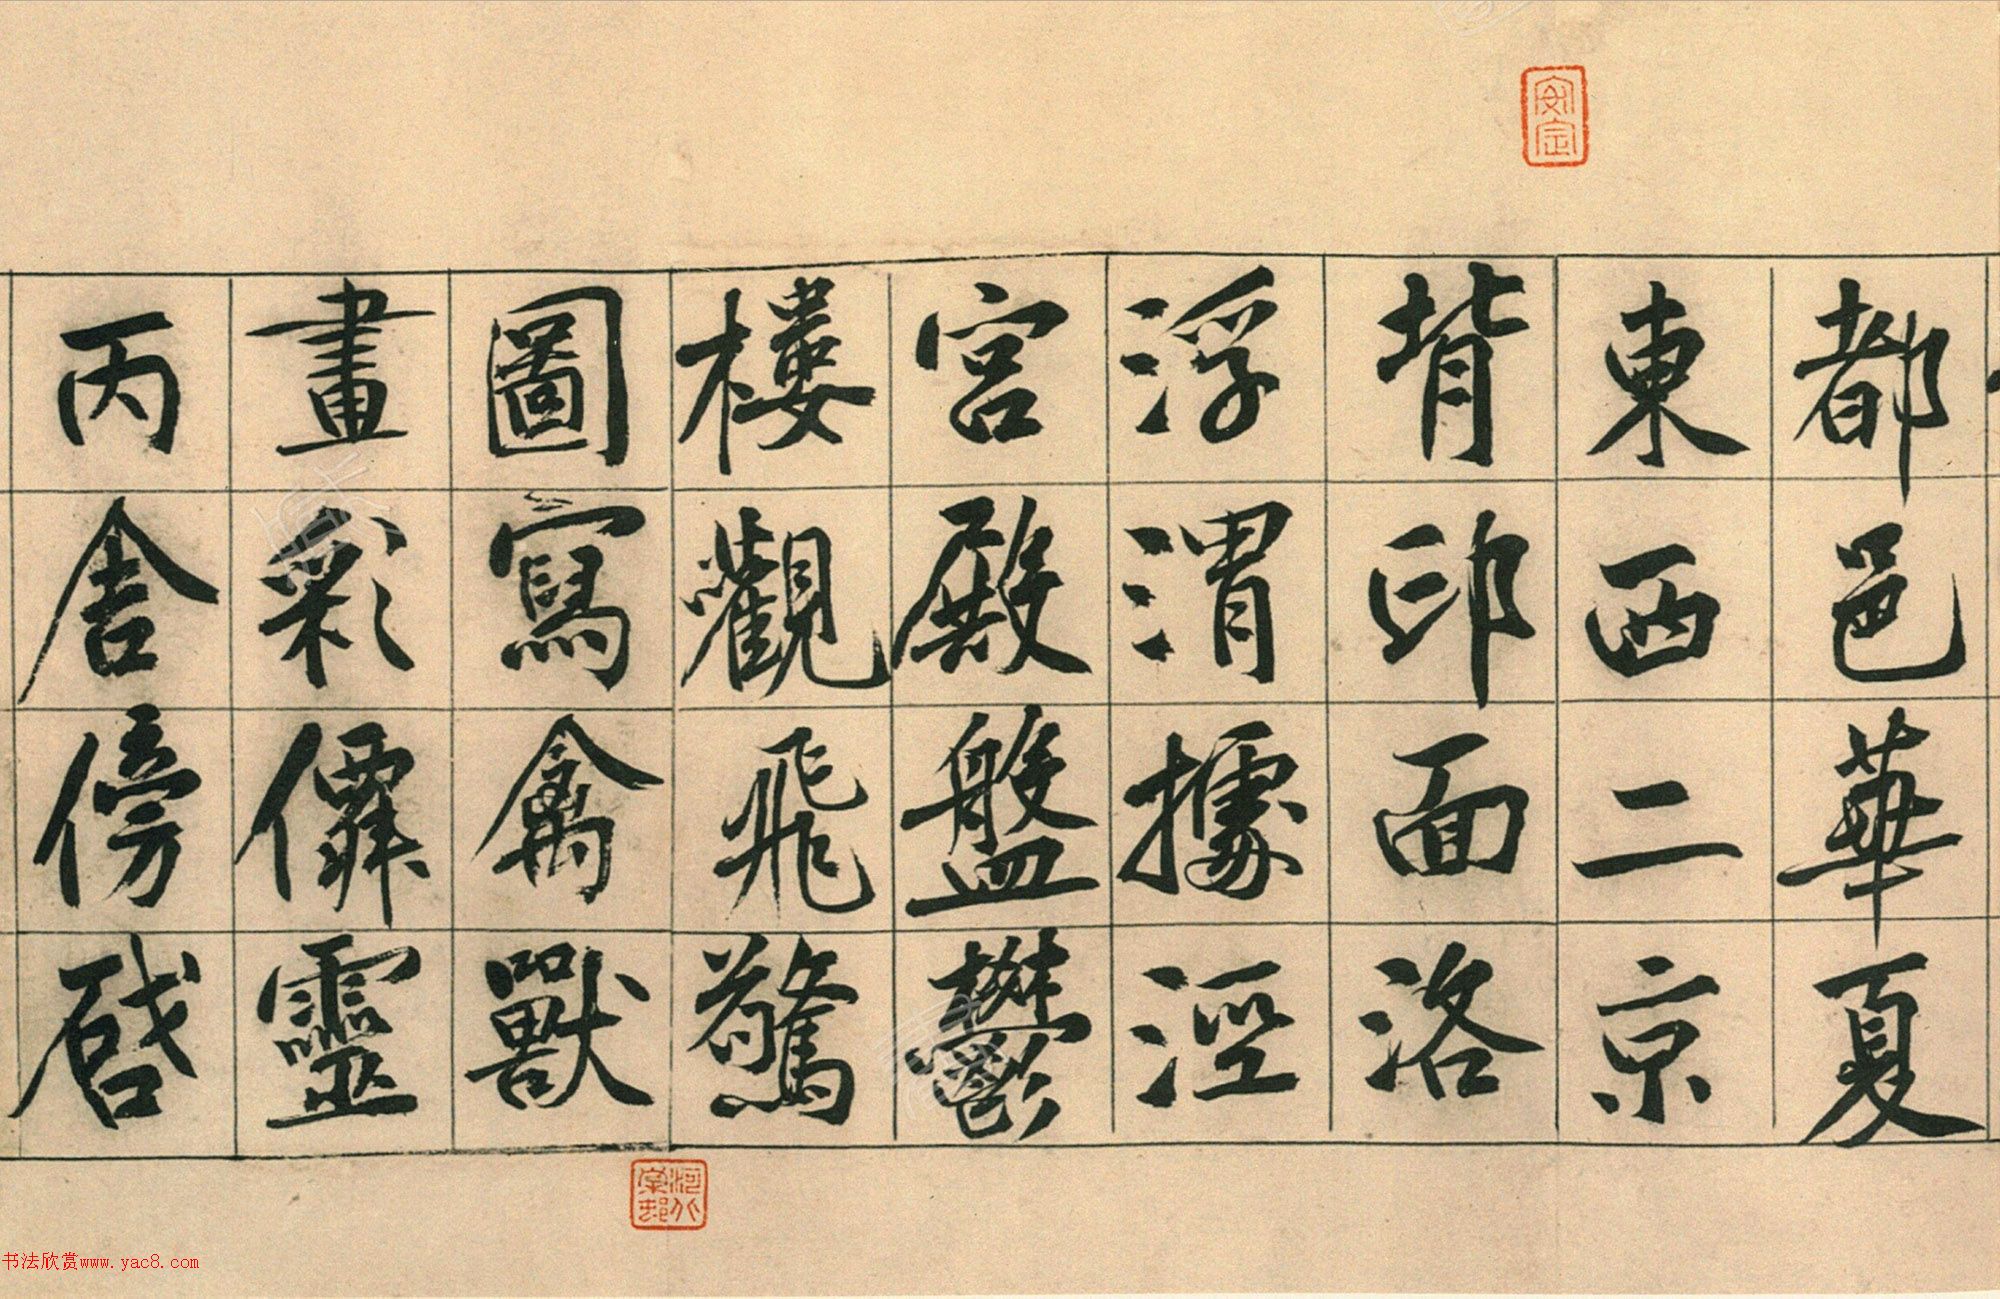 都邑華夏
東西二京
背邙面洛
浮渭據涇
宮殿盤鬱
樓觀飛驚
圖寫禽獸
畫彩僊靈
丙舍傍啟
安定
书法欣赏www.yac8.com